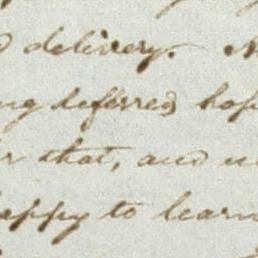 delivery.
deferred hop
that, and
happy to learn